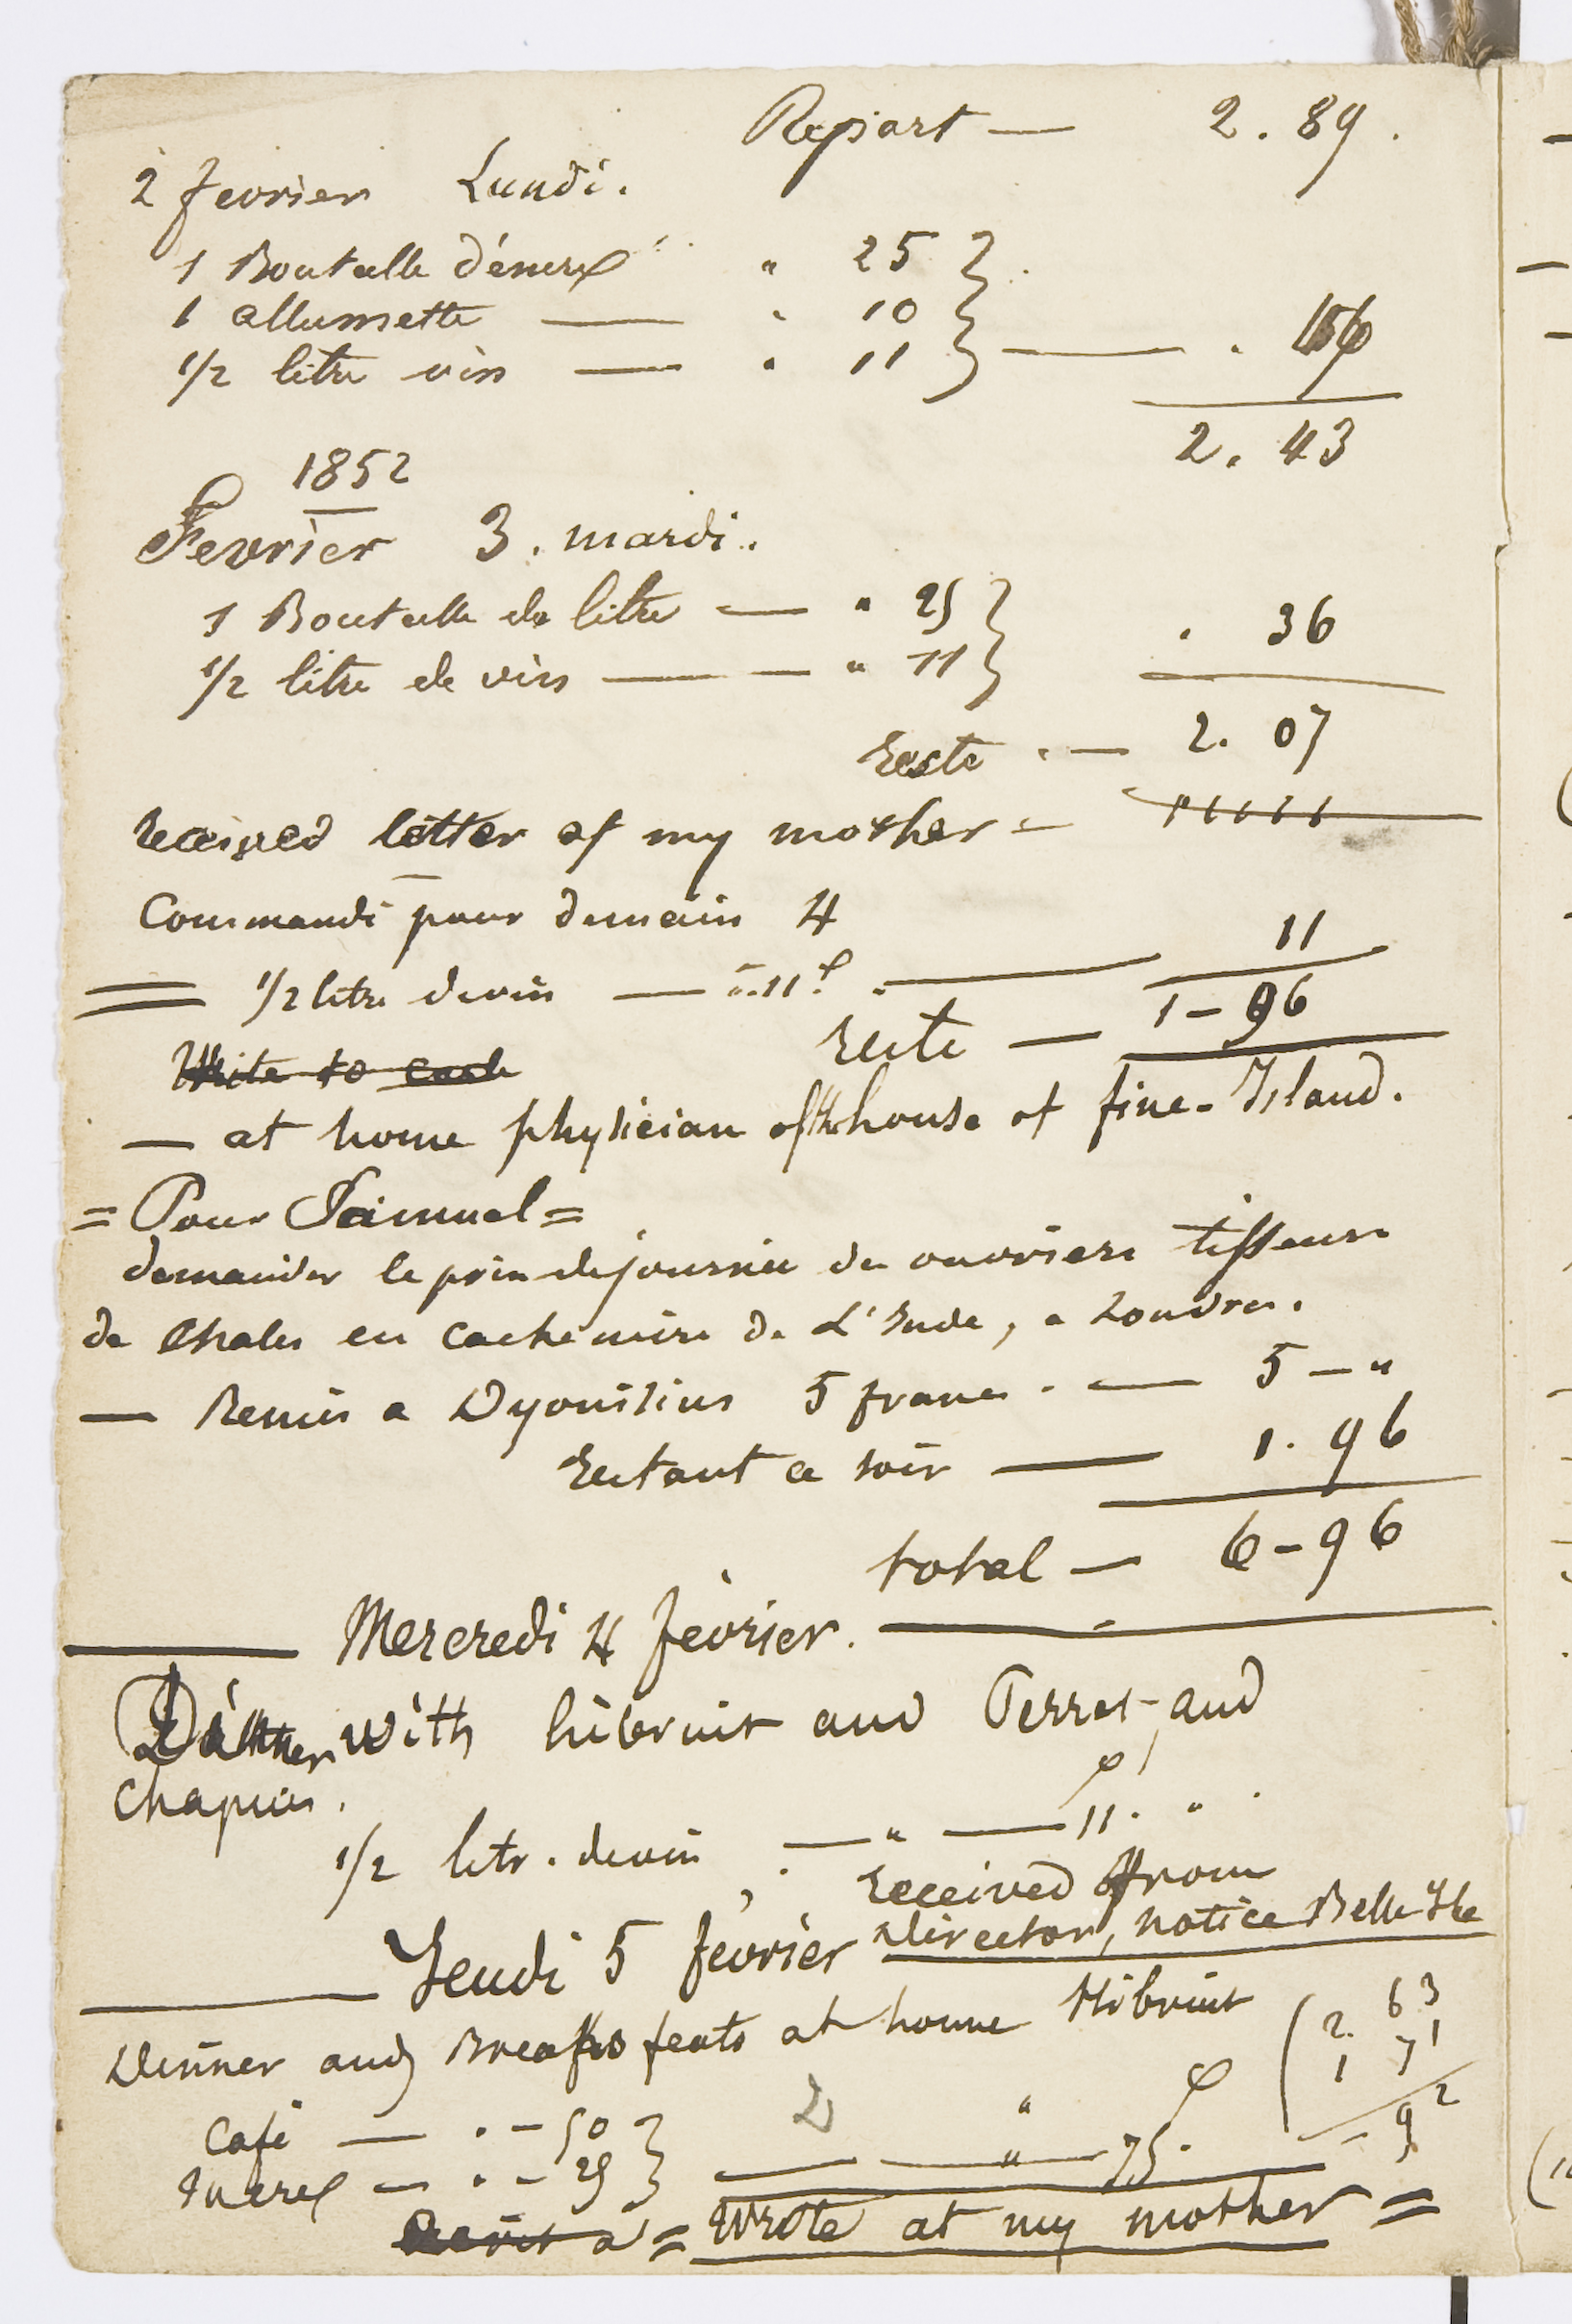 Report — 2 . 89 .
2 fevrier Lundi .
1 Bouteille d'encre " 25 }
1 allumette — " 10 }
1/2 litre vin — " 11 } — "
2 . 43
1852
Fevrier 3 . mardi .
1 Bouteille de litre — " 25 }
1/2 litre de vin — — " 11 } " 36
reste . — 2 . 07
received letter of my mother =
Commandé pour demain 4
= 1/2 litre de vin — " . 11 c . — 11
reste — 1 - 96
Write to
— at home physician of the house of fine - Island .
= Pour Samuel =
demander le prix de journée des ouvriers tisseurs
de Chales en cachemire de L'Inde , a Londres .
— Remis a Dyonisius 5 francs . — 5 - "
restant ce soir — 1 . 96
total — 6 - 96
— Mercredi 4 fevrier . —
Dinner with hibruit and Perret , and
chapuis .
1/2 litr . de vin , — " — 11 . "
received from
— Jeudi 5 fevrier Director , notice Belle Isle
Dinner and Breakfeats at home Hibruit
( 2 . 63
1 71
Café — " - 50 }
Sucre — " - 25 } — " — 75 . - 92
Ecrit a = wrote at my mother =